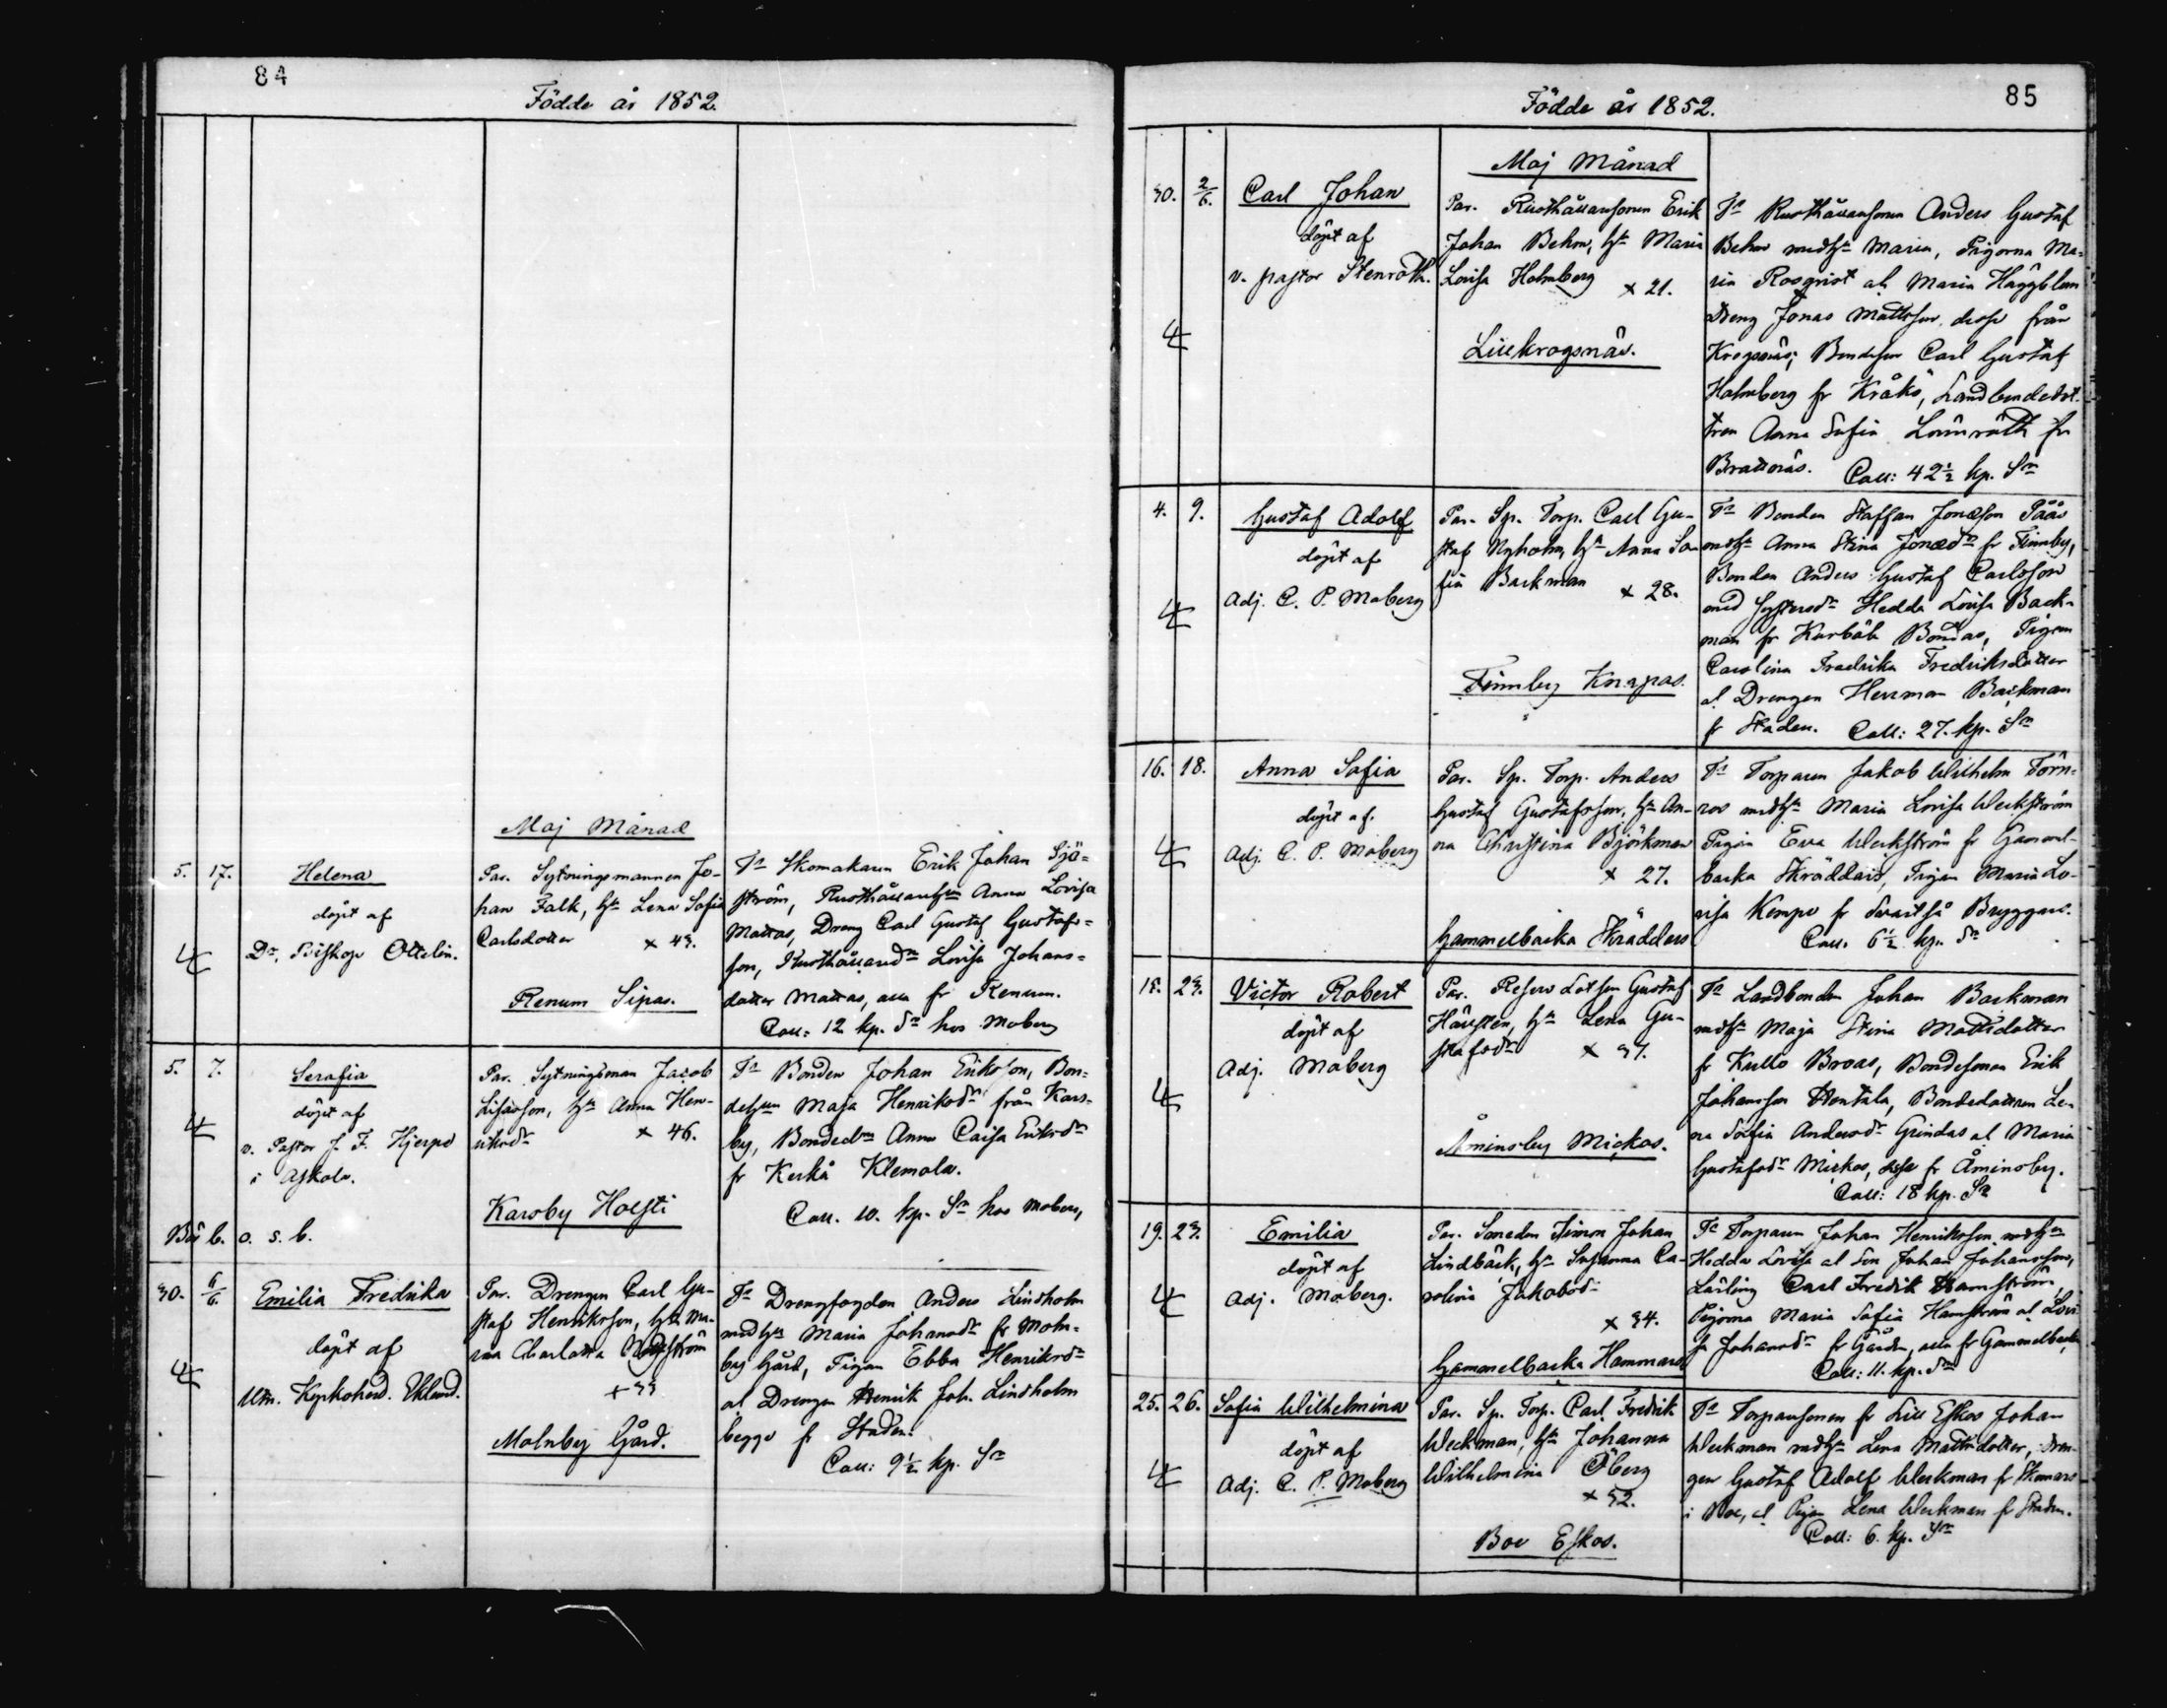 84
Födde år 1852.
Maj Månad
5. 17.
Helena
döpt af
Dr. Biskop Ottelin.
Par. Sytningsmannen Jo-
han Falk, hn Lena Sofia
Carlsdotter × 43.
Renum Sipas.
Fr Skomakaren Erik Johan Sjö-
ström, Rusthållarhn Anna Lovisa
Mattas, Dreng Carl Gustaf Gustafs-
son, Rusthållaredr Lovisa Johans-
dotter Mattas, alla fr Renum.
Coll: 12 kp. Sr hos Moberg
5. 7.
Serafia
döpt af
v. Pastor J. F. Hjerpe
i Askola.
Par. Sytningsman Jacob
hn Anna Hen-
riksdr × 46.
Karsby Holsti
Fr Bonden Johan Eriksson, Bon-
dehun Maja Henriksdr från Kars-
by, Bondedn Anna Caisa Eriksdr
fr Kerkå Klemola.
Coll. 10. kp. Sr hos Moberg
b. o. s. b.
30. 6/6.
Emilia Fredrika
döpt af
Ekelund.
Par. Drengen Carl Gu-
staf Henriksson, hn Ma-
ria Charlotta
× 33
Molnby Gård.
Fr Drengfogden Anders Lindholm
med hn Maria Johansdr fr Moln-
by Gård, Pigan Ebba Henriksdr
al Drengen Henrik Joh. Lindholm
begge fr Staden.
Coll: 9½ kp. Sr
85
Födde år 1852.
Maj Månad
30. 2/6.
Carl Johan
döpt af
v. pastor Stenroth.
Par. Rusthållaresonen Erik
Johan Behm, hn Maria
Lovisa Holmberg × 21.
Lillkrogsnäs.
Fr Rusthållaresonen Anders Gustaf
Behm medhn Maria, Pigorna Ma-
ria Rosqvist al Maria Häggblom
Dreng Jonas Mattsson, desse från
Krogsnäs; Bondeson Carl Gustaf
Holmberg fr Kråkö, Landbondedot-
tren Anna Sofia Lönnroth fr
Brattnäs. Coll: 42½ kp. Sr
4. 9.
Gustaf Adolf
döpt af
Adj. C. P. Moberg
Par. Sp. Torp. Carl Gu-
staf Nyholm, hn Anna So-
fia Backman × 28.
Finnby Knapas.
Fr Bonden Staffan Jonasson Påås
medhn Anna Stina Jonasdr fr Finnby,
Bonden Anders Gustaf Carlsson
med Hedda Lovisa Back-
man fr Karbäk Bondas, Pigan
Carolina Fredrika Fredriksdotter
al Drengen Herrman Backman
fr Staden. Coll: 27. kp. Sr
16. 18.
Anna Sofia
döpt af.
Adj. C. P. Moberg
Par. Sp. Torp. Anders
Gustaf Gustafsson, hn An-
na Christina Björkman
× 27.
Gammelbacka Skradders
Fr Torparen Jakob Wilhelm Törn-
ros medhn Maria Lovisa Weckström
Pigan Eva Weckström fr Gammel-
backa Skräddars, Pigan Maria Lo-
visa Kempe fr Svartså Bryggars.
Coll. 6½ kp. Sr
15. 23.
Victor Robert
döpt af
Adj. Moberg
Par. Reserv Lotsen Gustaf
hn Lena Gu-
stafsdr × 37.
Åminsby Mickos.
Fr Landbonden Johan Backman
medhn Maja Stina Mattsdotter
fr Kullo Broas, Bondesonen Erik
Johansson Bondedottren Le-
na Sofia Andersdr Grindas al Maria
Gustafsdr Mickos, desse fr Åminsby.
Coll: 18 kp. Sr
19. 23.
Emilia
döpt af
Adj. Moberg.
Par. Smeden Simon Johan
Lindbäck, hn Susanna Ca-
rolina Jakobsdr
× 34.
Gammelbacka Hammars
Fr Torparen Johan Henriksson medhn
Hedda Lovisa al Son Johan Johansson,
Lärling Carl Fredrik Hamström,
Pigorna Maria Sofia Hamström al Lovi-
sa Johansdr fr Gården, alla fr Gammelbacka
Coll: 11. kp. Sr
25. 26.
Sofia Wilhelmina
döpt af
Adj. C. P. Moberg
Par. Sp. Torp. Carl Fredrik
Weckman, hn Johanna
Wilhelmina Öberg
× 32.
Boe Eskos.
Fr Torparesonen fr Lill Eskos Johan
Weckman medhn Lena Mattsdotter, Dren-
gen Gustaf Adolf Weckman fr
i Boe, al Pigan Lena Weckman fr Staden.
Coll: 6. kp. Sr